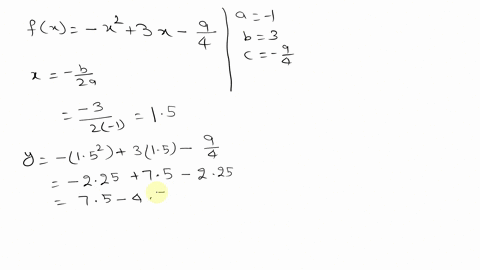 f(x) = -x² + 3x - 9/4
a = -1
b = 3
c = -9/4
x = -b/2a
= -3/2(-1) = 1.5
y = -(1.5²) + 3(1.5) - 9/4
= -2.25 + 7.5 - 2.25
= 7.5 - 4.